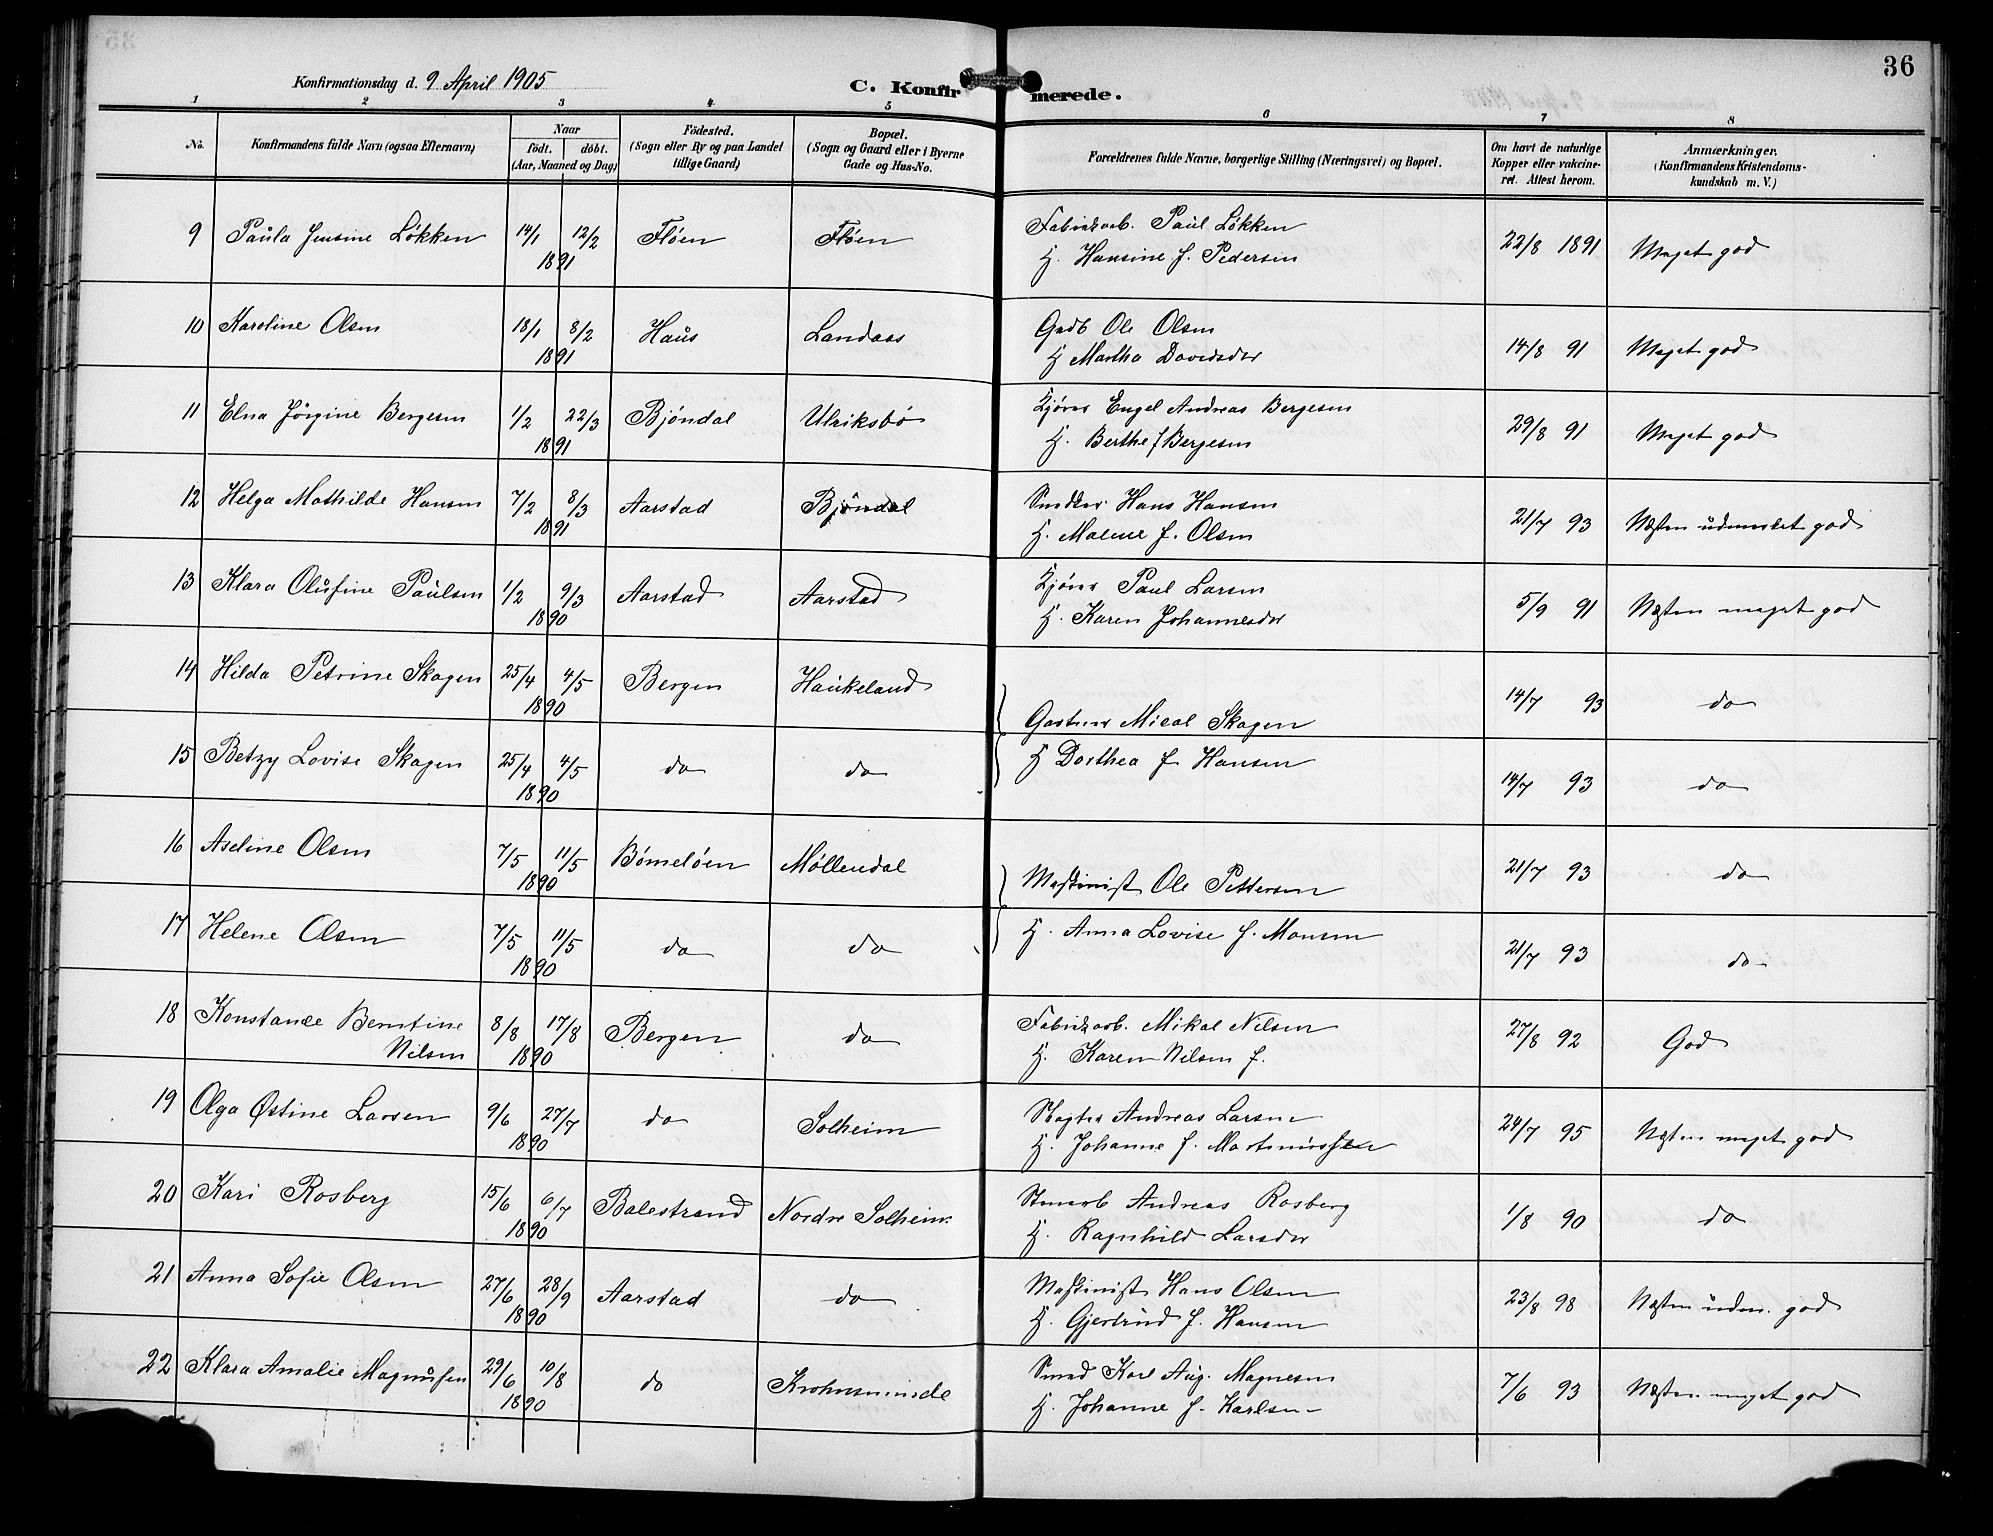 36
Konfirmationsdag d. 9 April 1905
C. Konfir merede.
1 2 3 4 5 6 7 8
No. Konfirmandens fulde Navn (ogsaa Efternavn) Naar født. døbt. (Aar, Maaned og Dag) Fødested. (Sogn eller By og paa Landet tillige Gaard) Bopæl. (Sogn og Gaard eller i Byerne Gade og Hus-No. Forældrenes fulde Navne, borgerlige Stilling (Næringsvei) og Bopæl. Om havt de naturlige Kopper eller vakcineret. Attest herom. Anmærkninger. (Konfirmandens Kristendomskundskab m. V.)
9 Paula Jensine Løkken 14/1 12/2 1891 Fløen Fløen Fabrikarb. Paul Løkken 22/8 1891 Meget god
H. Hansine f. Pedersen
10 Karoline Olsen 18/1 8/2 1891 Haus Landaas Gadb Ole Olsen 14/8 91 Meget god
H Martha Davidsdtr
11 Elna Jørgine Bergesen 1/2 22/3 1891 Bjøndal Ulriksbø Kjører Engel Andreas Bergesen 29/8 91 Meget god
H. Berthe f Bergesen
12 Helga Mathilde Hansen 7/2 8/3 1891 Aarstad Bjøndal Snedker Hans Hansen 21/7 93 Næsten udmerket god
H. Malene f. Olsen
13 Klara Olufine Paulsen 1/2 9/3 1890 Aarstad Aarstad Kjører Paul Larsen 5/9 91 Næsten meget god
H. Karen Johannesdtr
14 Hilda Petrine Skagen 25/4 4/5 1890 Bergen Haukeland 14/7 93 do
Gartner Mical Skagen
15 Betzy Lovise Skagen 25/4 4/5 1890 do do H Dorthea f Hansen 14/7 93 do
16 Aseline Olsen 7/5 11/5 1890 Bømeløen Møllendal 21/7 93 do
Maskinist Ole Pettersen
17 Helene Olsen 7/5 11/5 1890 do do H. Anna Lovise f. Monsen 21/7 93 do
18 Konstance Berntine 8/8 17/8 1890 Bergen do Fabrikarb. Mikal Nilsen 27/8 92 God
Nilsen H. Karen Nilsen f.
19 Olga Østine Larsen 9/6 27/7 1890 do Solheim Slagter Andreas Larsen 24/7 95 Næsten meget god
H. Johanne f. Martinussen
20 Kari Rosberg 15/6 6/7 1890 Balestrand Nordre Solheim Stenarb Andreas Rosberg 1/8 90 do
H. Ragnhild Larsdtr
21 Anna Sofie Olsen 27/6 28/9 1890 Aarstad do Maskinist Hans Olsen 23/8 98 Næsten udm. god
H. Gjertrud f. Hansen
22 Klara Amalie Magnussen 29/6 10/8 1890 do Krohnsminde Smed Karl Aug. Magnesen 7/6 93 Næsten meget god
H. Johanne f. Karlsen